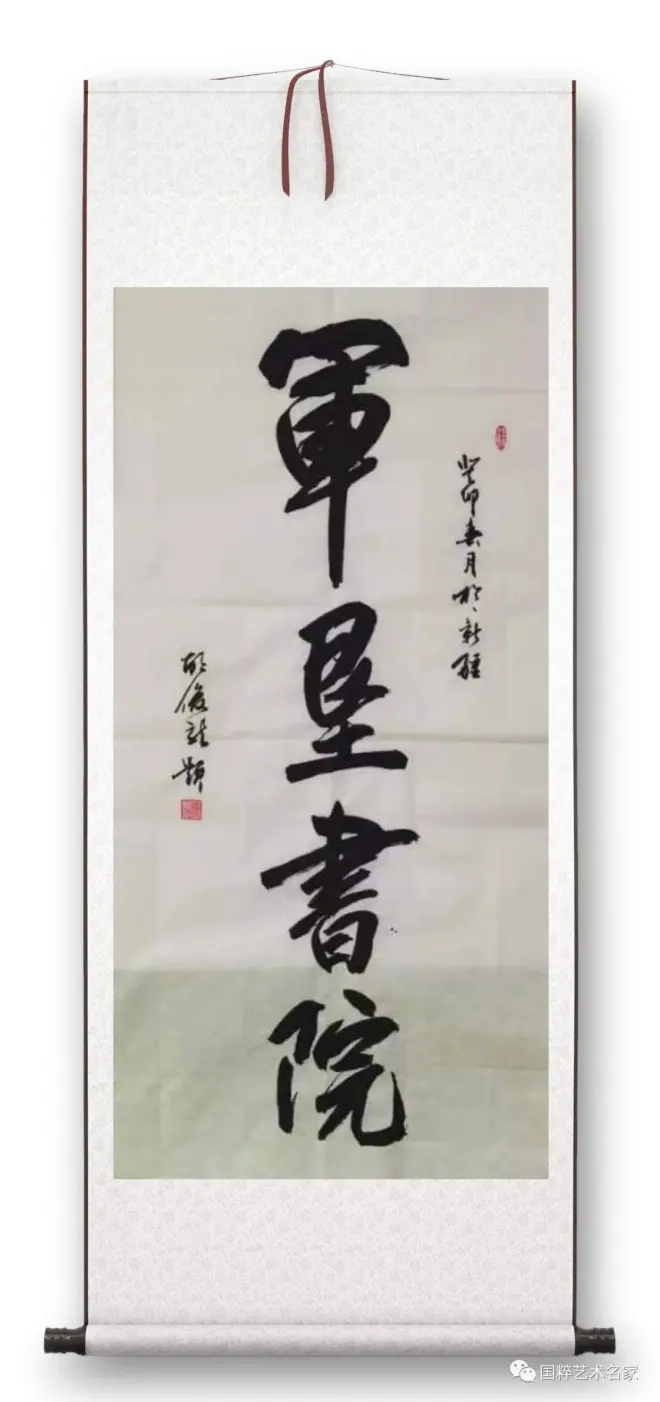 軍垦書院
癸卯春月於新疆
胡俊龍題
国粹艺术名家